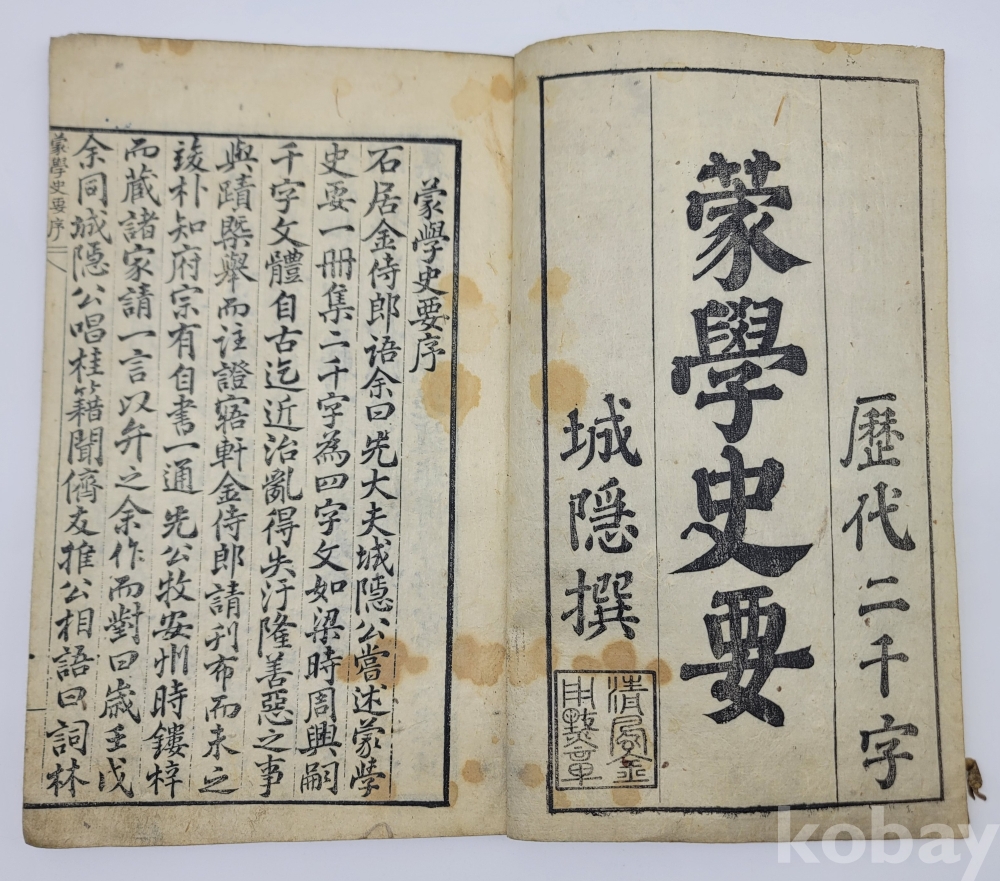 歷代二千字
蒙學史要
城隱撰
蒙學史要序
石居金侍郎語余曰先大夫城隱公嘗述蒙學
史要一冊集二千字為四字文如梁時周興嗣
千字文體自古迄近治亂得失汙隆善惡之事
與蹟槩舉而註證寤軒金侍郎請刊布而未之
竣朴知府宗有自書一通先公牧安州時鏤梓
而藏諸家請一言以弁之余作而對曰歲壬戌
余同城隱公唱桂籍聞儕友推公相語曰詞林
蒙學史要序
kobay